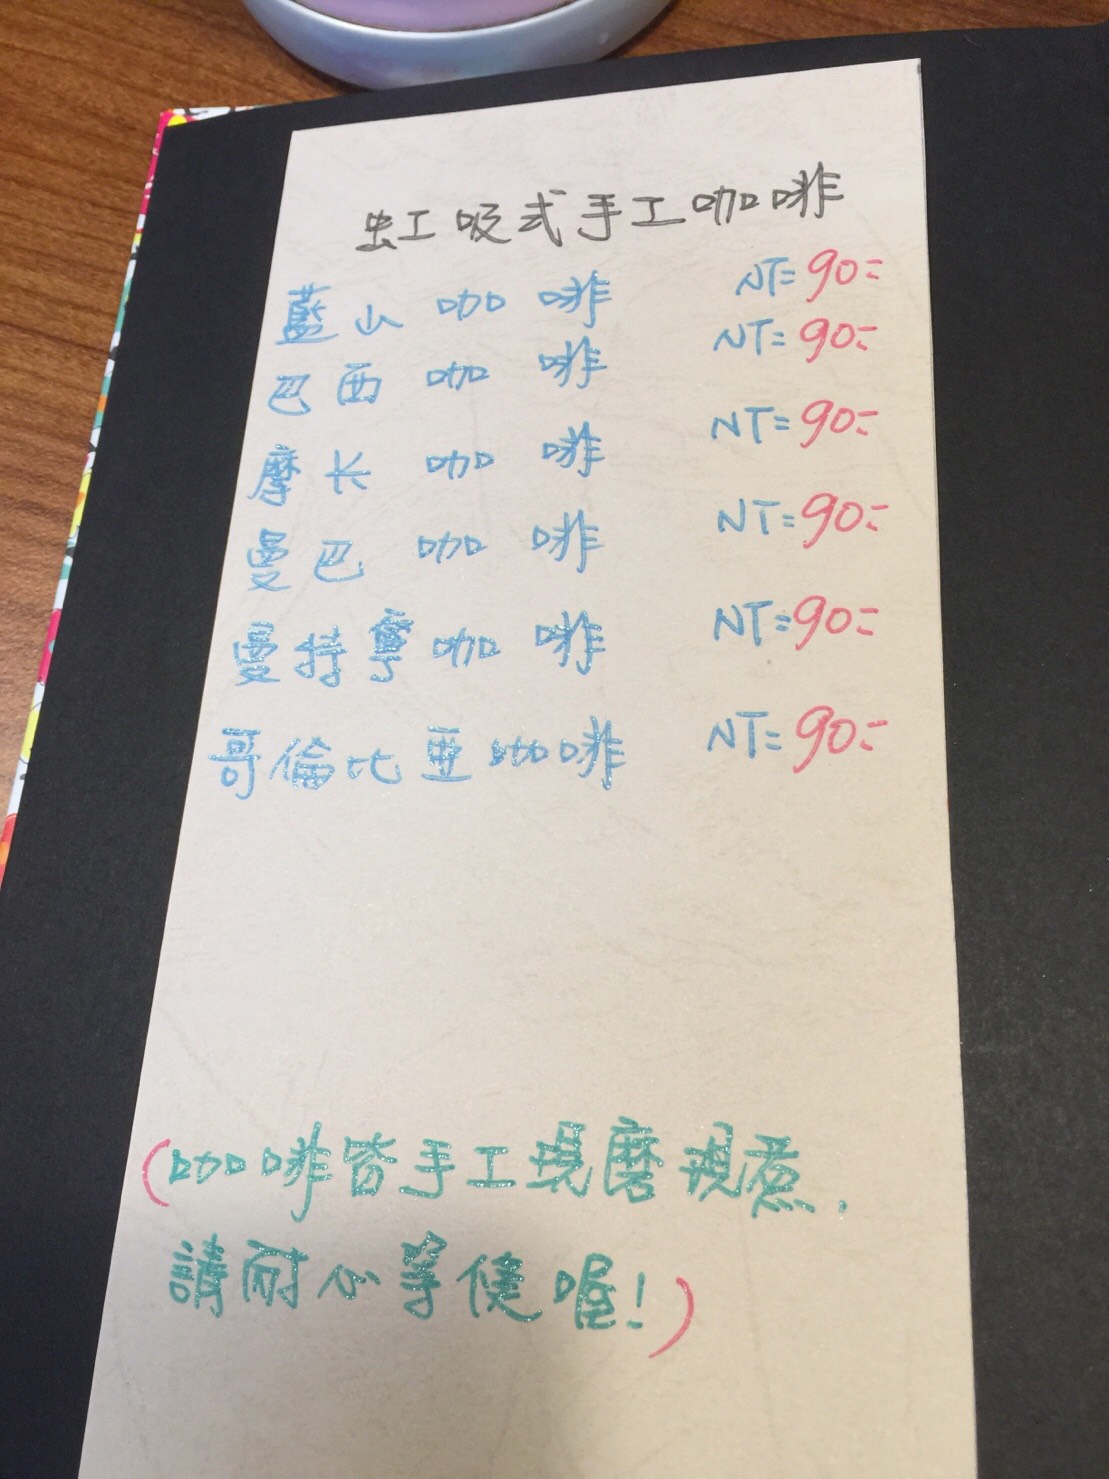 虹吸式手工咖啡
藍山咖啡 NT=90=
巴西咖啡 NT=90=
摩长咖啡 NT=90=
曼巴咖啡 NT=90=
曼特寧咖啡 NT=90=
哥倫比亞咖啡 NT=90=
(咖啡皆手工現磨現煮,
請耐心等候喔!)